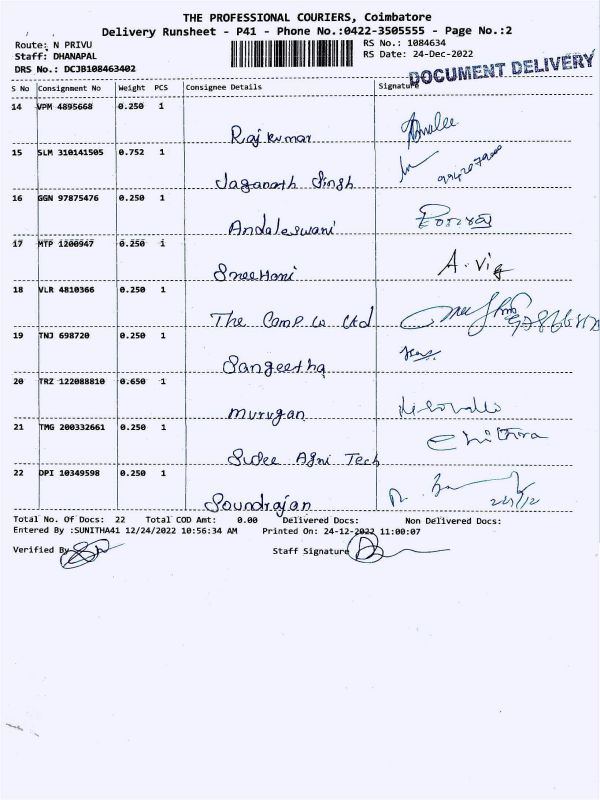 THE PROFESSIONAL COURIERS, Coimbatore
Delivery Runsheet - P41 - Phone No.:0422-3505555 - Page No.:2
Route: N PRIVU
RS No.: 1084634
Staff: DHANAPAL
RS Date: 24-Dec-2022
DRS No.: DCJB108463402
DOCUMENT DELIVERY
S No Consignment No Weight PCS Consignee Details Signature
14 VPM 4895668 0.250 1
Rajkumar
15 SLM 310141505 0.752 1
Jaganath Singh
16 GGN 97875476 0.250 1
Andaleswani
17 MTP 1206947 0.250 1
SreeHari A. Vig
18 VLR 4810366 0.250 1
The Comp. Co Ltd
19 TNJ 698720 0.250 1
Sangeetha
20 TRZ 122088810 0.650 1
Murugan
21 TMG 200332661 0.250 1
Chithra
Sudee Agni Tech
22 DPI 10349598 0.250 1
Soundrajan
Total No. Of Docs: 22 Total COD Amt: 0.00 Delivered Docs: Non Delivered Docs:
Entered By :SUNITHA41 12/24/2022 10:56:34 AM Printed On: 24-12-2022 11:00:07
Verified By Staff Signature